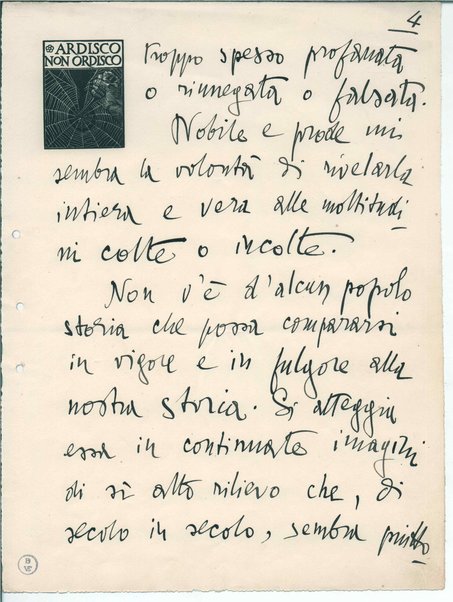 4
ARDISCO
NON ORDISCO
troppo spesso profanata
o rinnegata o falsata.
Nobile e prode mi
sembra la volontà di rivelarla
intiera e vera alle moltitudi
ni colte o incolte.
Non v'è d'alcun popolo
storia che possa compararsi
in vigore e in fulgore alla
nostra storia. Si atteggia
essa in continuate imagini
di sì alto rilievo che, di
secolo in secolo, sembra piutto